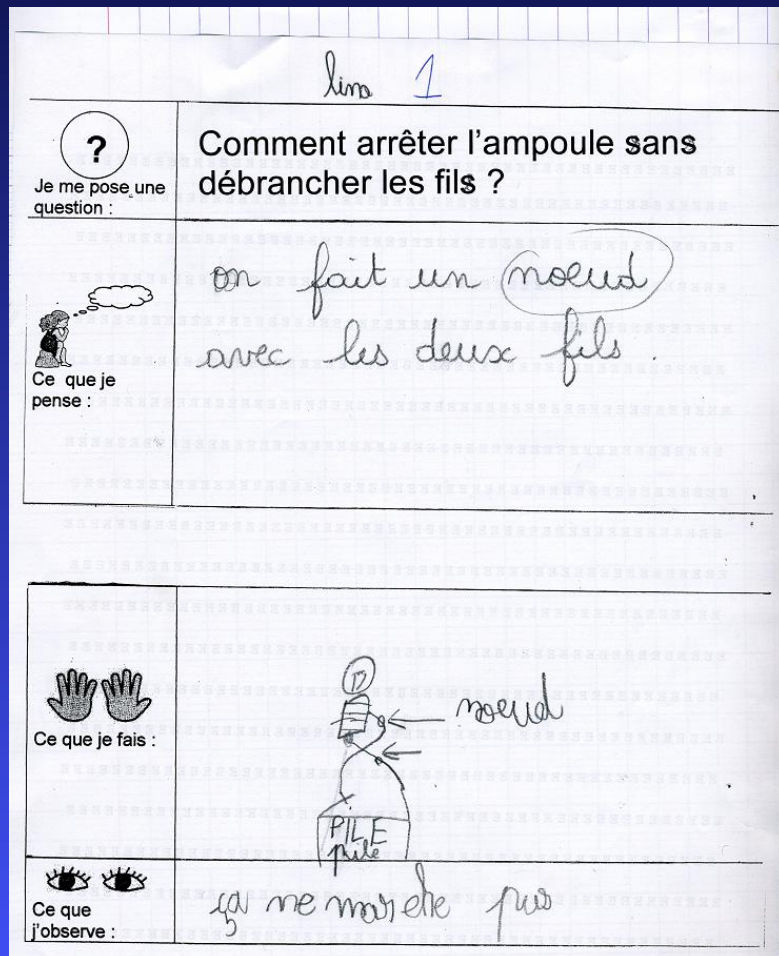 lina 1
?
Je me pose une
question :
Comment arrêter l'ampoule sans
débrancher les fils ?
on fait un noeud
avec les deux fils.
Ce que je
pense :
noeud
Ce que je fais :
PILE
pile
Ce que
j'observe :
ça ne marche pas